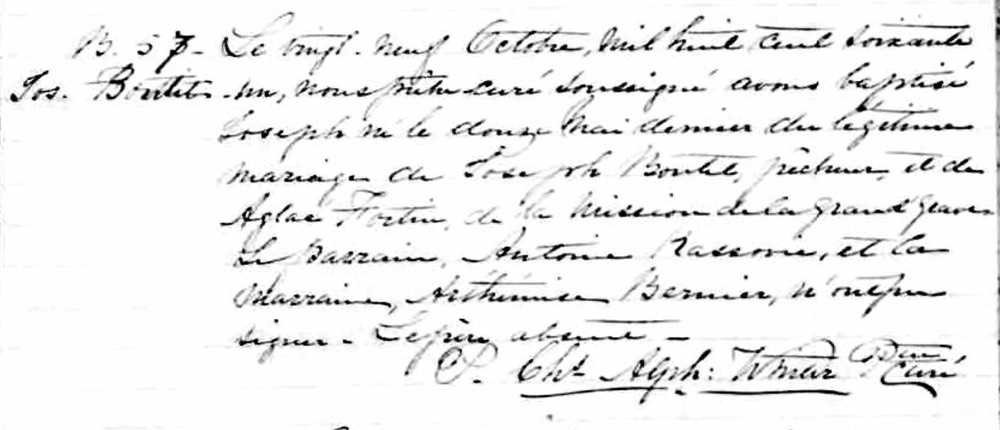 B. 57 - Le vingt-neuf Octobre, mil huit cent soixante
Jos. Boutet -un, nous prêtre-curé soussigné avons baptisé
Joseph né le douze Mai dernier du légitime
mariage de Joseph Boutet, pêcheur, et de
Aglaé Fortin, de la Mission de la grand'grave.
Le Parrain, Antoine et la
Marraine, Arthémise Bernier, n'ont pu
signer - Le père absent -
Chs Alph: Ptre Curé